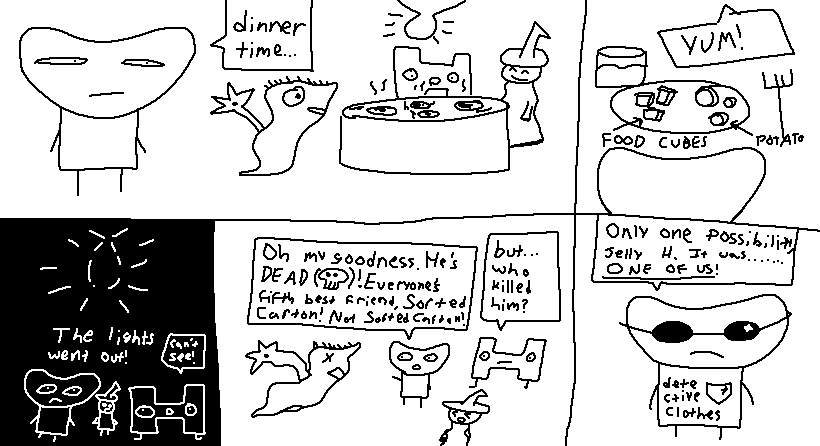 dinner
time...
YUM!
FOOD CUBES
POTATO
The lights
went out!
can't
see!
Oh my goodness. He's
DEAD ( )! Everyone's
fifth best friend, Sorted
Carton! Not Sorted Carton!
but...
who
killed
him?
Only one possibility,
Jelly H. It was.......
ONE OF US!
dete
ctive
clothes